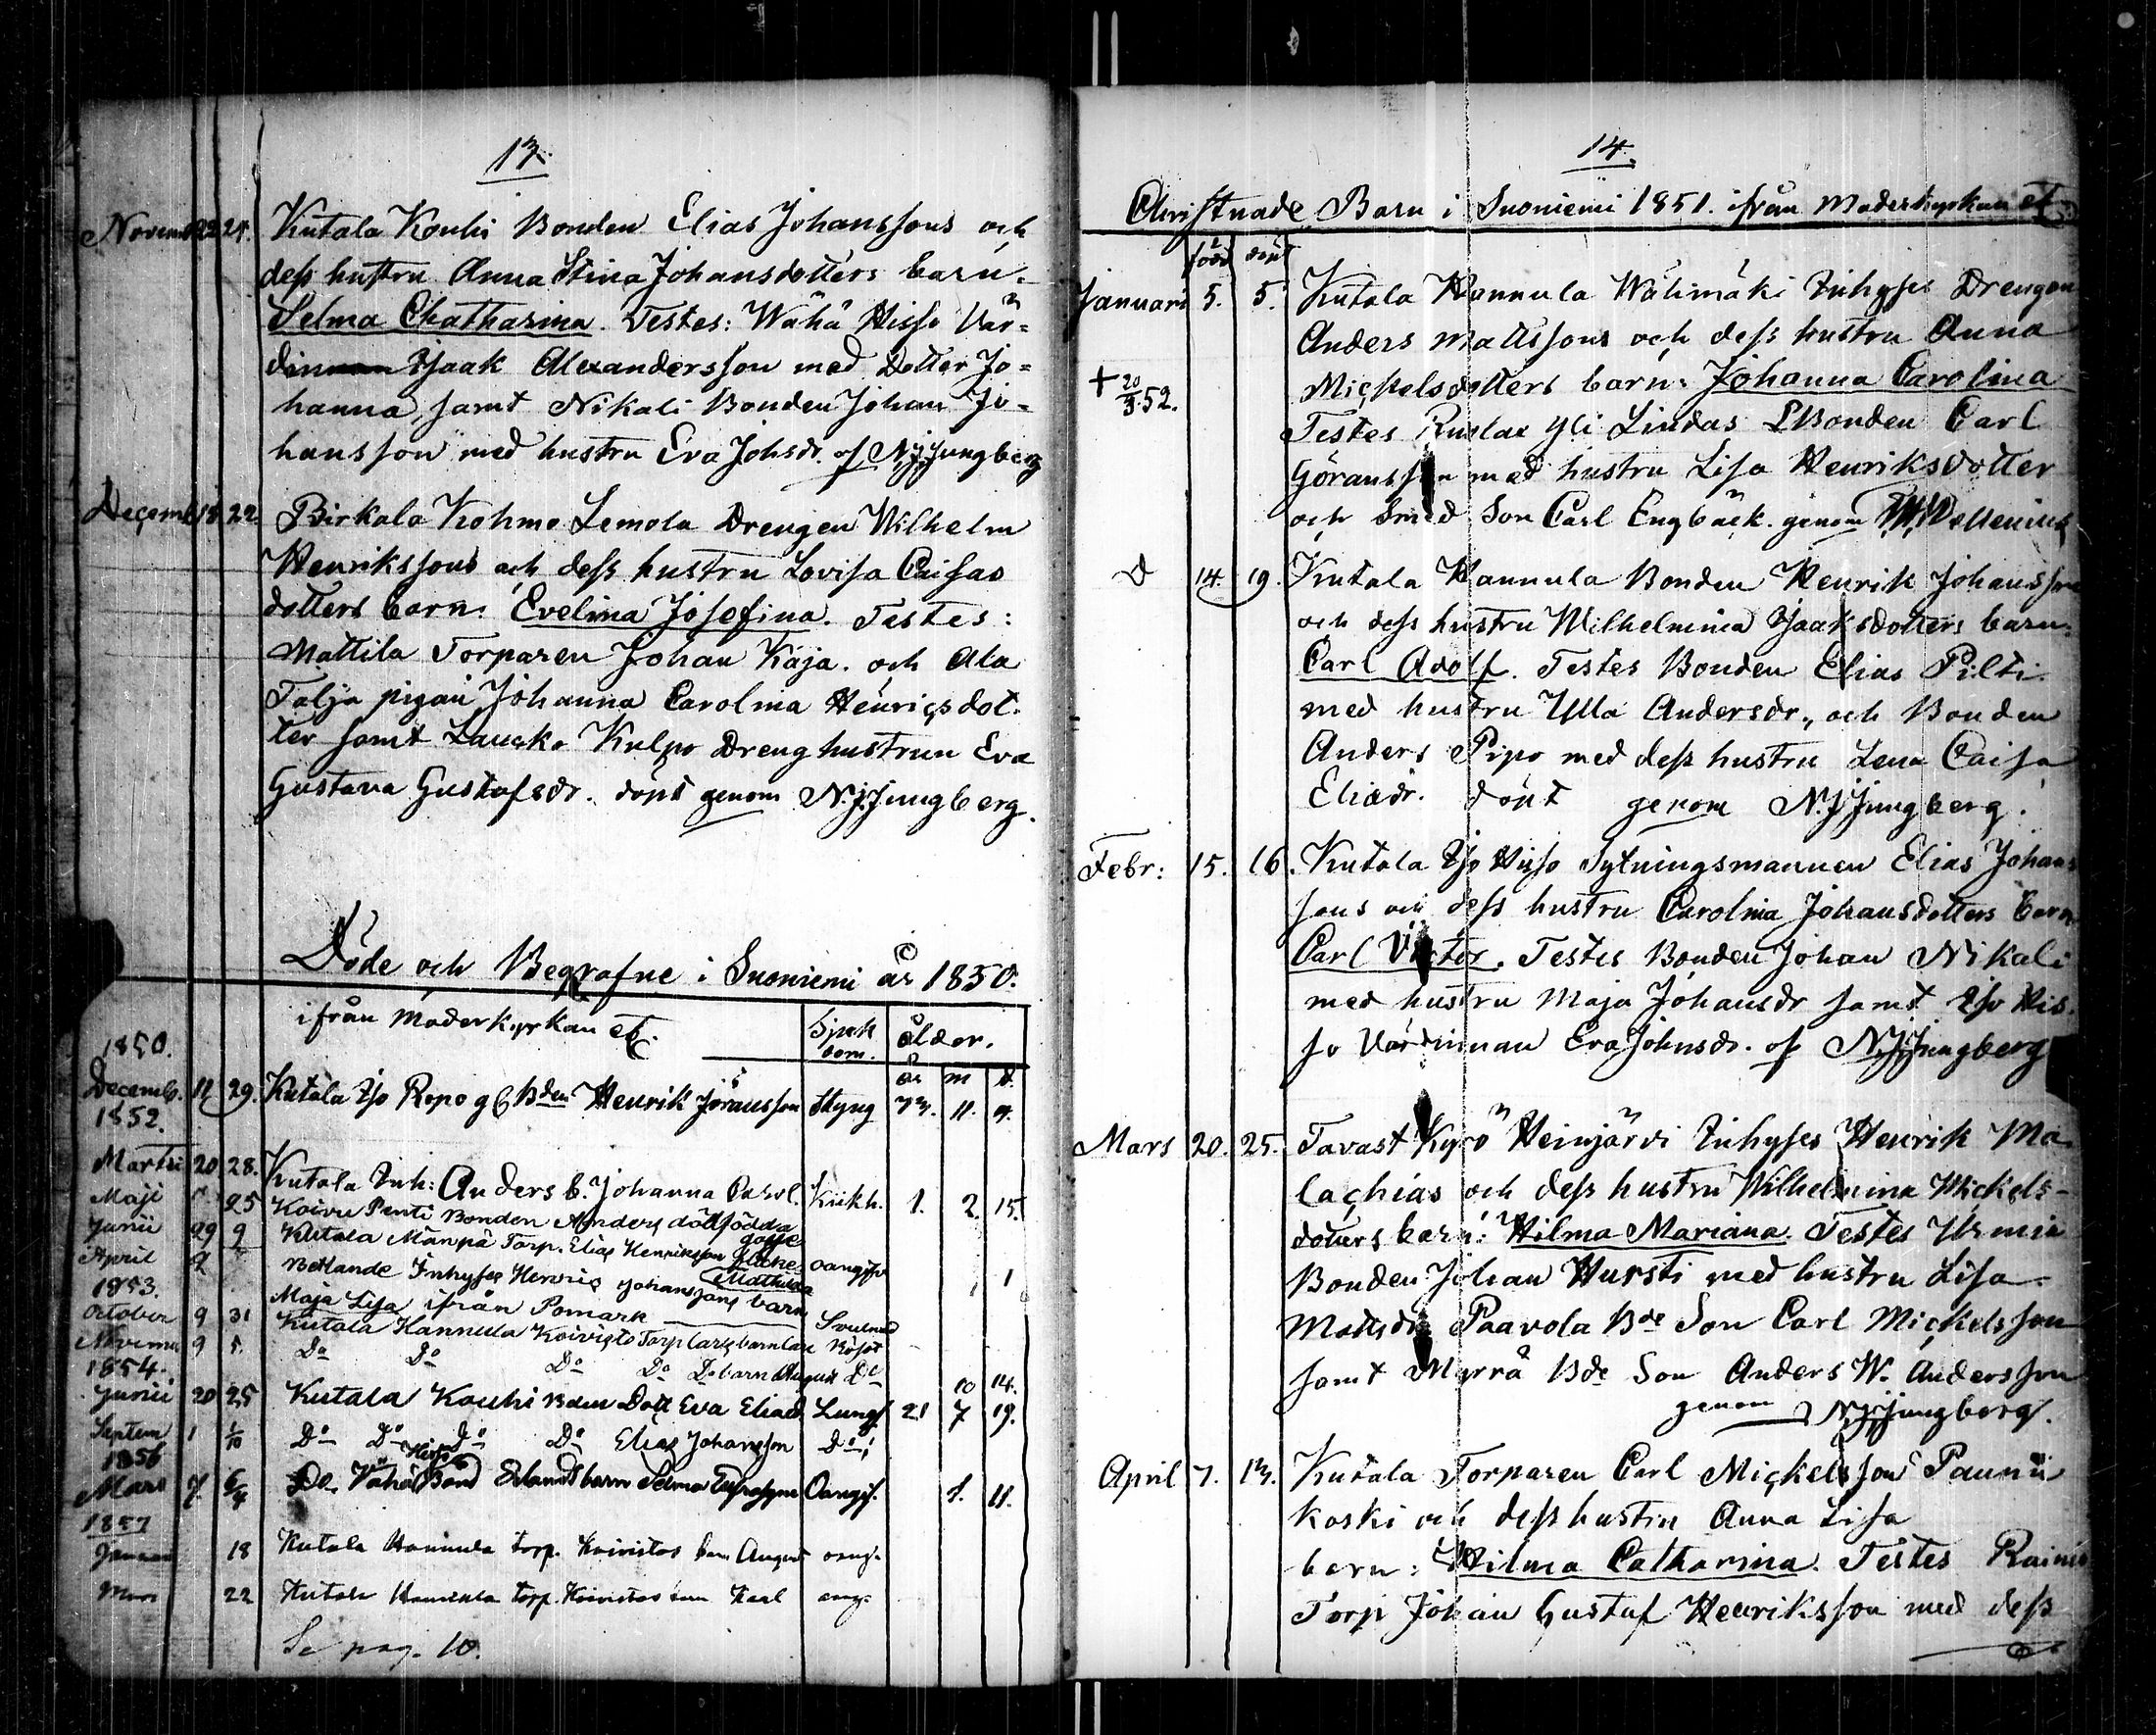 13.
Novemb 22 25. Kutala Kouhi Bonden Elias Johanssons och
dess hustru Anna Stina Johansdotters barn
Selma Chatharina. Testes: Wähä Hisso Vär=
dinnan Isaak Alexandersson med Dotter Jo=
hanna, samt Nikali Bonden Johan Jo=
hansson med hustru Eva Johsdr. af N.J. Ljungberg
Decemb 18 22. Birkala Kohmo Lemola Drengen Wilhelm
Henrikssons och dess hustru Lovisa Caisas
dotters barn. Evelina Josefina. Testes:
Mattila Torparen Johan Kaja. och Ala
Talja pigan Johanna Carolina Henricsdot.
ter samt Laucko Kulpo Drenghustrun Eva
Gustava Gustafsdr. döpt genom N.J. Ljungberg.
Döde och Begrafne i Suoniemi år 1850.
ifrån Moderkyrkan etc. Sjuk dom. ålder.
1850. år m d.
Decemb. 11 29. Kutala Iso Ropo gl Bden Henrik Jöransson Styng 73. 11. 9.
1852.
Martii 20 28. Kutala Inh: Anders b. Johanna Carol. Kikh. 1. 2. 15.
Maji 25 Koivu Penti Bonden Anders dödfödda gosse
Junii 29 9 Kutala Mänpä Torp. Elias Henriksson oangifv
April 2 Betlande Inhyses Henric Johanssons barn Mathilda 1
1853. Maja Lisa ifrån Pomark
October 9 31 Kutala Hannula Koivisto Torp Carls barn Rösot
Novemb 9 5. Do Do Do Do Do barn August Do 10 14.
1854.
Junii 20 25 Kutala Kouhi Bden Dott Eva Eliasd. Lungs 21 7 19.
Septem 1 1/10 Do Do Do Do Elias Johansson Do
1856
Mars 7. 6/4 Do Vähä Hisso Bond Erlands barn Selma Oangif. 1. 11.
1857
Januari 18 Kutala Hannula torp. Koivistos barn August oang.
Mars 22 Kutala Hannula torp. Koivistos barn Karl oang.
Se pag. 10.
14.
Christnade Barn i Suoniemi 1851. ifrån Moderkyrkan etc
född döpt
Januari 5. 5. Kutala Hannula Wälimäki Inhyses Drengen
Anders Mattssons och dess hustru Anna
+ 20/3 52. Mickelsdotters barn: Johanna Carolina
Testes Yli Lindas Bonden Carl
Göransson med hustru Lisa Henriksdotter
och Smed Son Carl Engbäck. genom
D 14. 19. Kutala Hannula Bonden Henrik Johansson
och dess hustru Wilhelmina Isaaksdotters barn:
Carl Adolf. Testes Bonden Elias Pilti
med hustru Ulla Andersdr., och Bonden
Anders Pipo med dess hustru Lena Caisa
Eliædr. döpt genom N.J. Ljungberg.
Febr: 15. 16. Kutala Iso Hisso Sytningsmannen Elias Johans
sons och dess hustru Carolina Johansdotters barn
Carl Victor. Testes Bonden Johan Nikali
med hustru Maja Johansdr samt Iso His
so Värdinnan Eva Johnsdr. af N.J. Ljungberg
Mars 20. 25. Tavast Kyrö Heinjärvi Inhyses Henrik Ma
lachias och dess hustru Wilhelmina Mickels-
dotters barn: Hilma Mariana. Testes Urmia
Bonden Johan Hursti med hustru Lisa
Mattsdr Paavola Bde Son Carl Mickelsson
samt Myrrä Bde Son Anders W. Andersson
genom N.J. Ljungberg.
April 7. 13. Kutala Torparen Carl Mickelsson Pannu
koski och dess hustru Anna Lisa
barn: Hilma Catharina. Testes Rainio
Torp Johan Gustaf Henriksson med dess